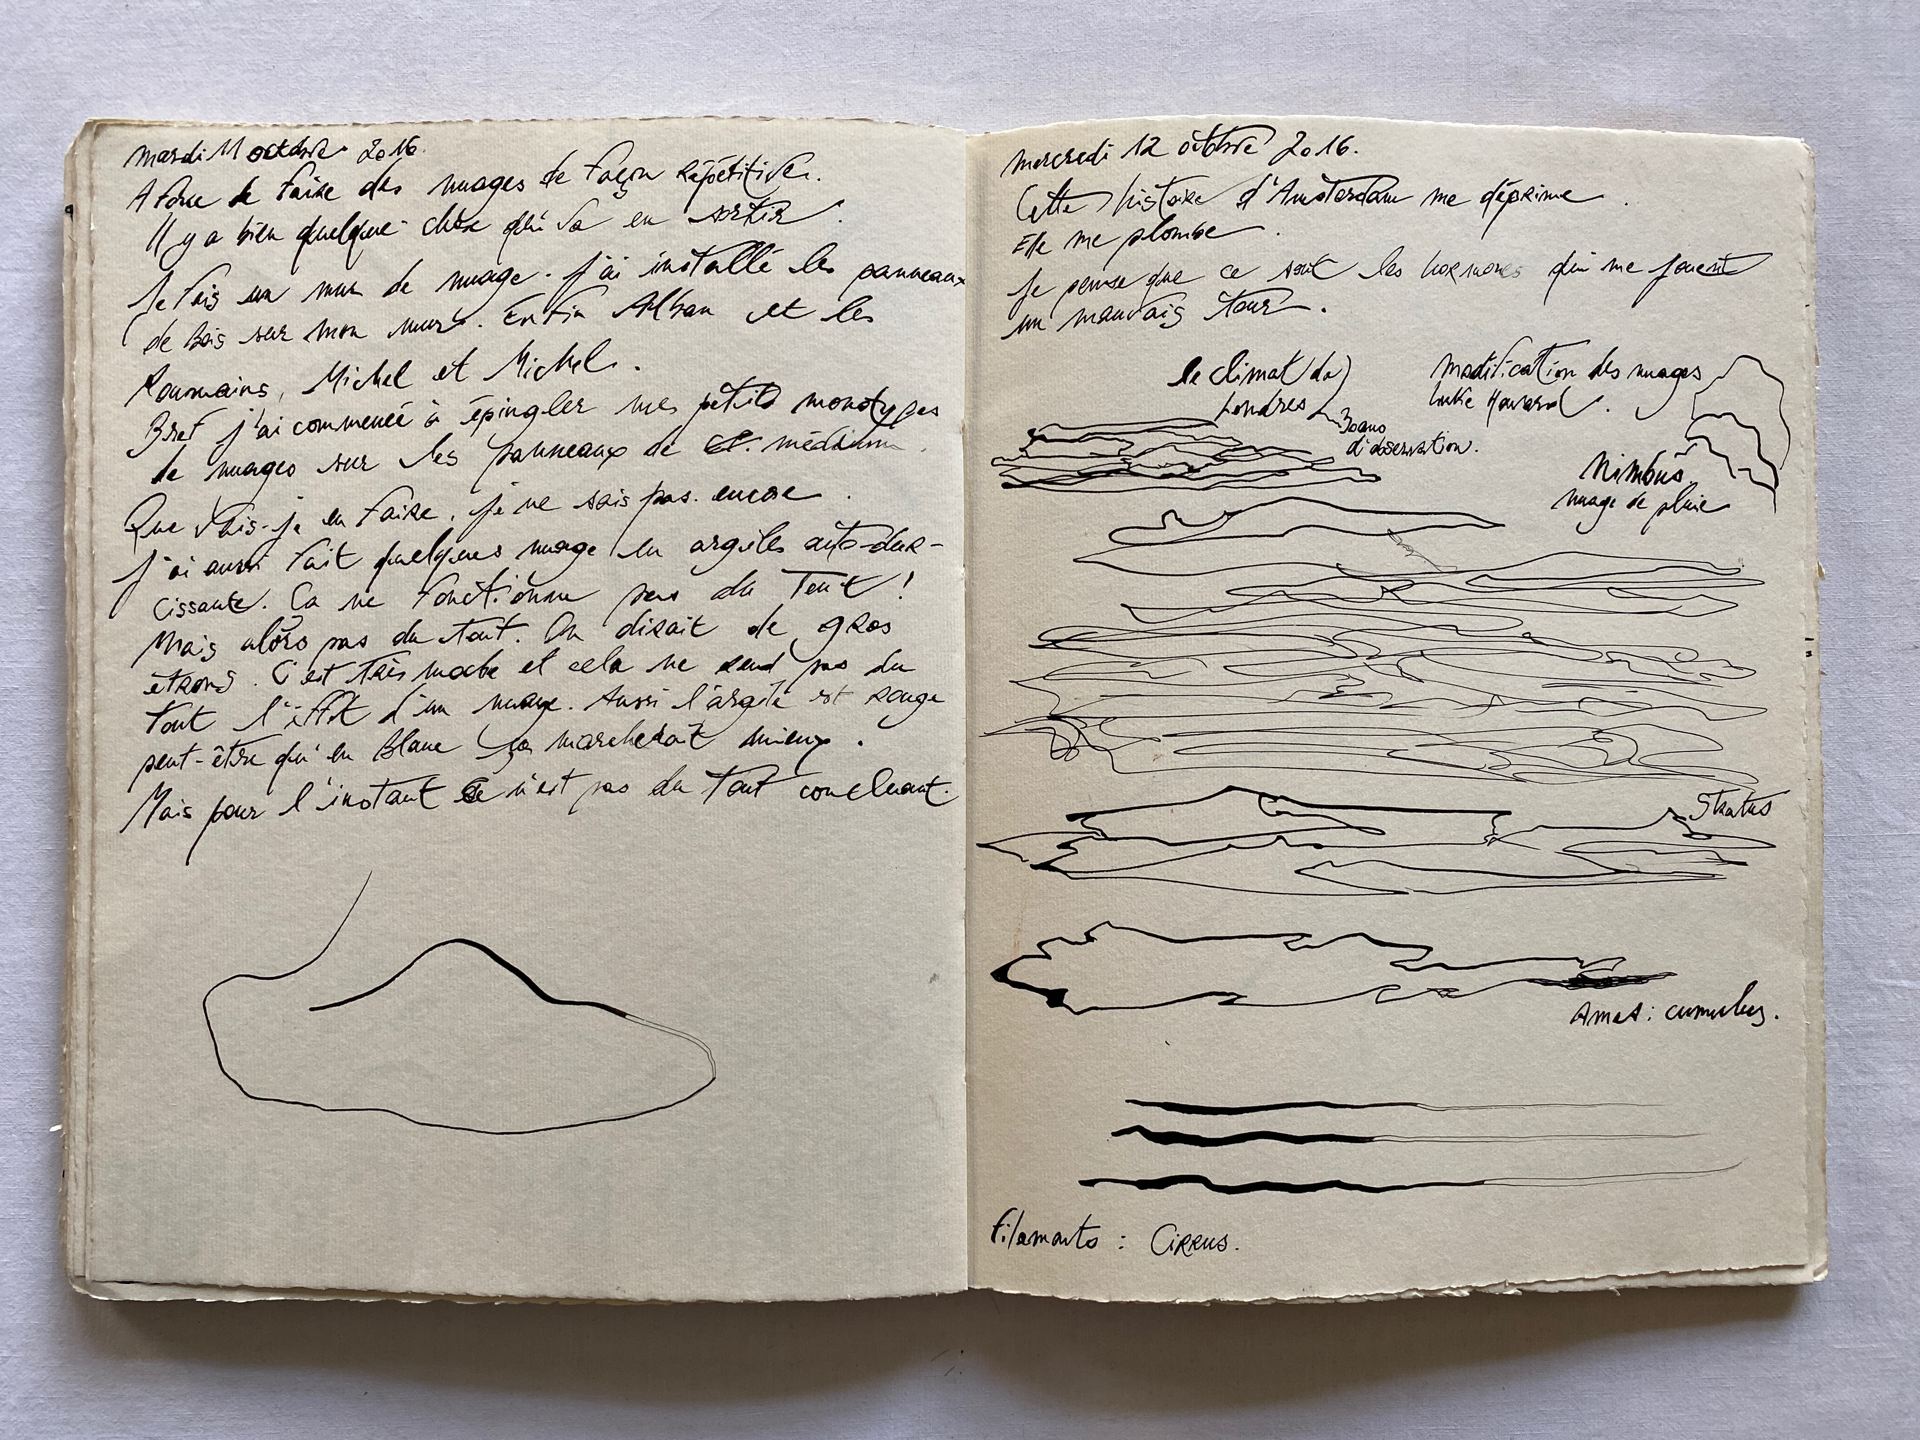 mardi 11 octobre 2016.
A force de faire des nuages de façon répétitive.
Il y a bien quelque chose qui va en sortir.
Je fais un mur de nuage. J'ai installé les panneaux
de bois sur mon mur. Enfin Alban et les
Roumains, Michel et Michel.
Bref j'ai commencé à épingler mes petits monotypes
de nuages sur les panneaux de médium.
Que vais-je en faire, je ne sais pas encore.
J'ai aussi fait quelques nuage en argiles auto-dur-
cissante. Ça ne fonctionne pas du Tout !
Mais alors pas du tout. On dirait de gros
étrons. C'est très moche et cela ne rend pas du
tout l'effet d'un nuage. Aussi l'argile est rouge
peut-être qu'en blanc ça marcherait mieux.
Mais pour l'instant ce n'est pas du tout concluant.
mercredi 12 octobre 2016.
Cette histoire d'Amsterdam me déprime.
Elle me plombe.
Je pense que ce sont les hormones qui me jouent
un mauvais tour.
le climat de
Londres
30 ans
d'observation.
modification des nuages
Luke Howard.
Nimbus.
nuage de pluie
Stratus
Amas : cumulus.
Filaments : Cirrus.